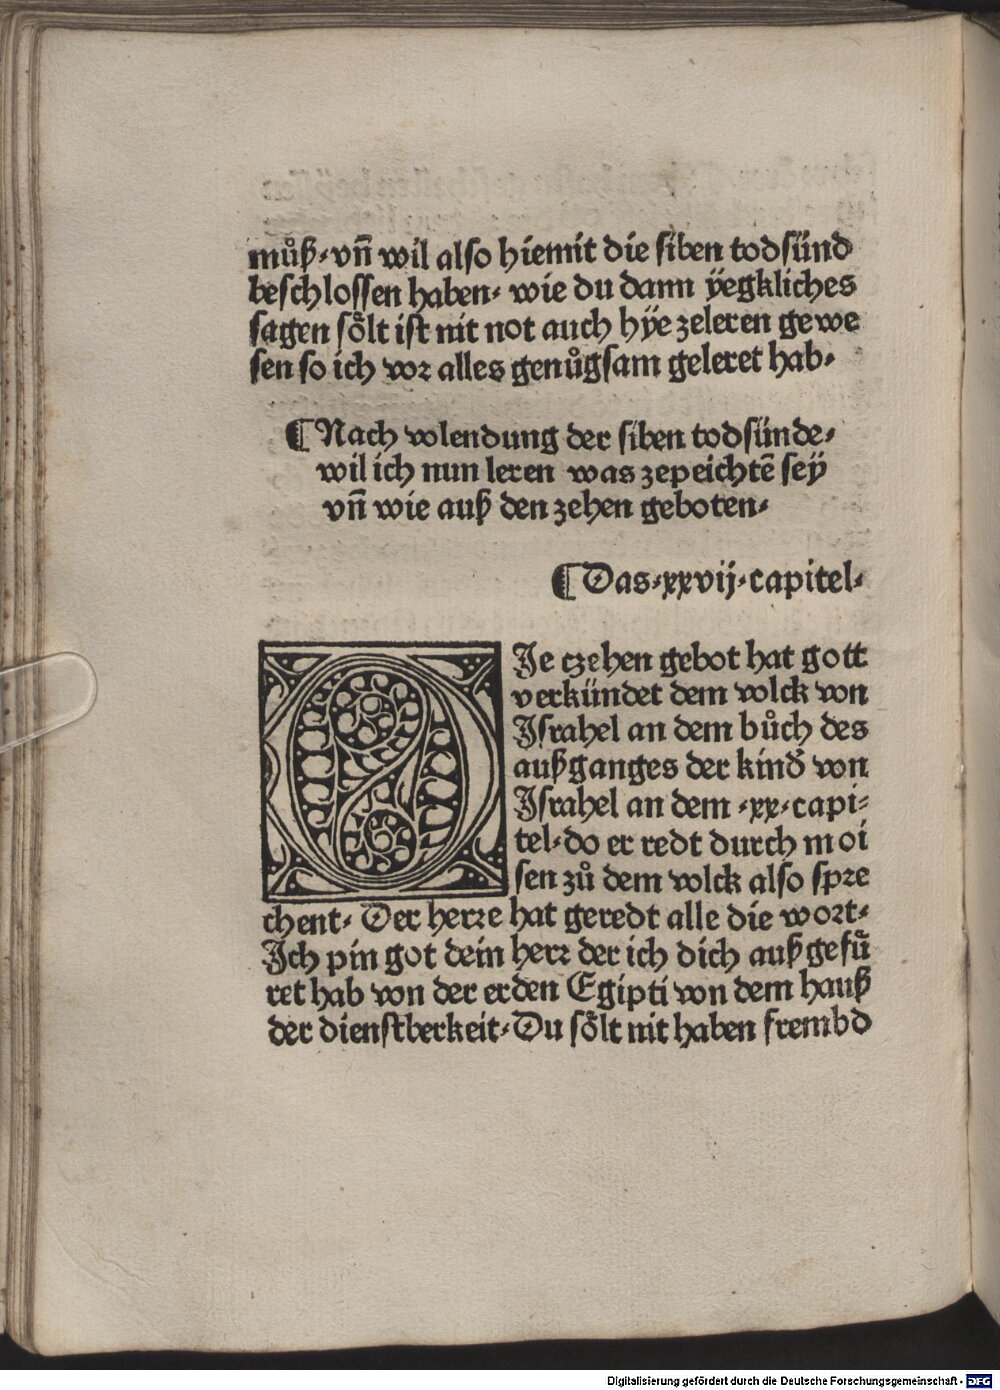 můß. vn̄ wil also hiemit die siben todsünd
beschlossen haben. wie du dann ÿegkliches
sagen soͤlt ist nit not auch hÿe zeleren gewe
sen so ich vor alles genůgsam geleret hab.
¶ Nach volendung der siben todsünde.
wil ich nun leren was zepeichtē seÿ
vn̄ wie auß den zehen geboten.
¶ Das .xxvij. capitel.
DJe czehen gebot hat gott
verkündet dem volck von
Jsrahel an dem bůch des
außganges der kind̕ von
Jsrahel an dem .xx. capi-
tel. do er redt durch moi
sen zů dem volck also spre
chent. Der herre hat geredt alle die wort.
Jch pin got dein herr der ich dich auß gefuͤ
ret hab von der erden Egipti von dem hauß
der dienstberkeit. Du soͤlt nit haben frembd
Digitalisierung gefördert durch die Deutsche Forschungsgemeinschaft - DFG